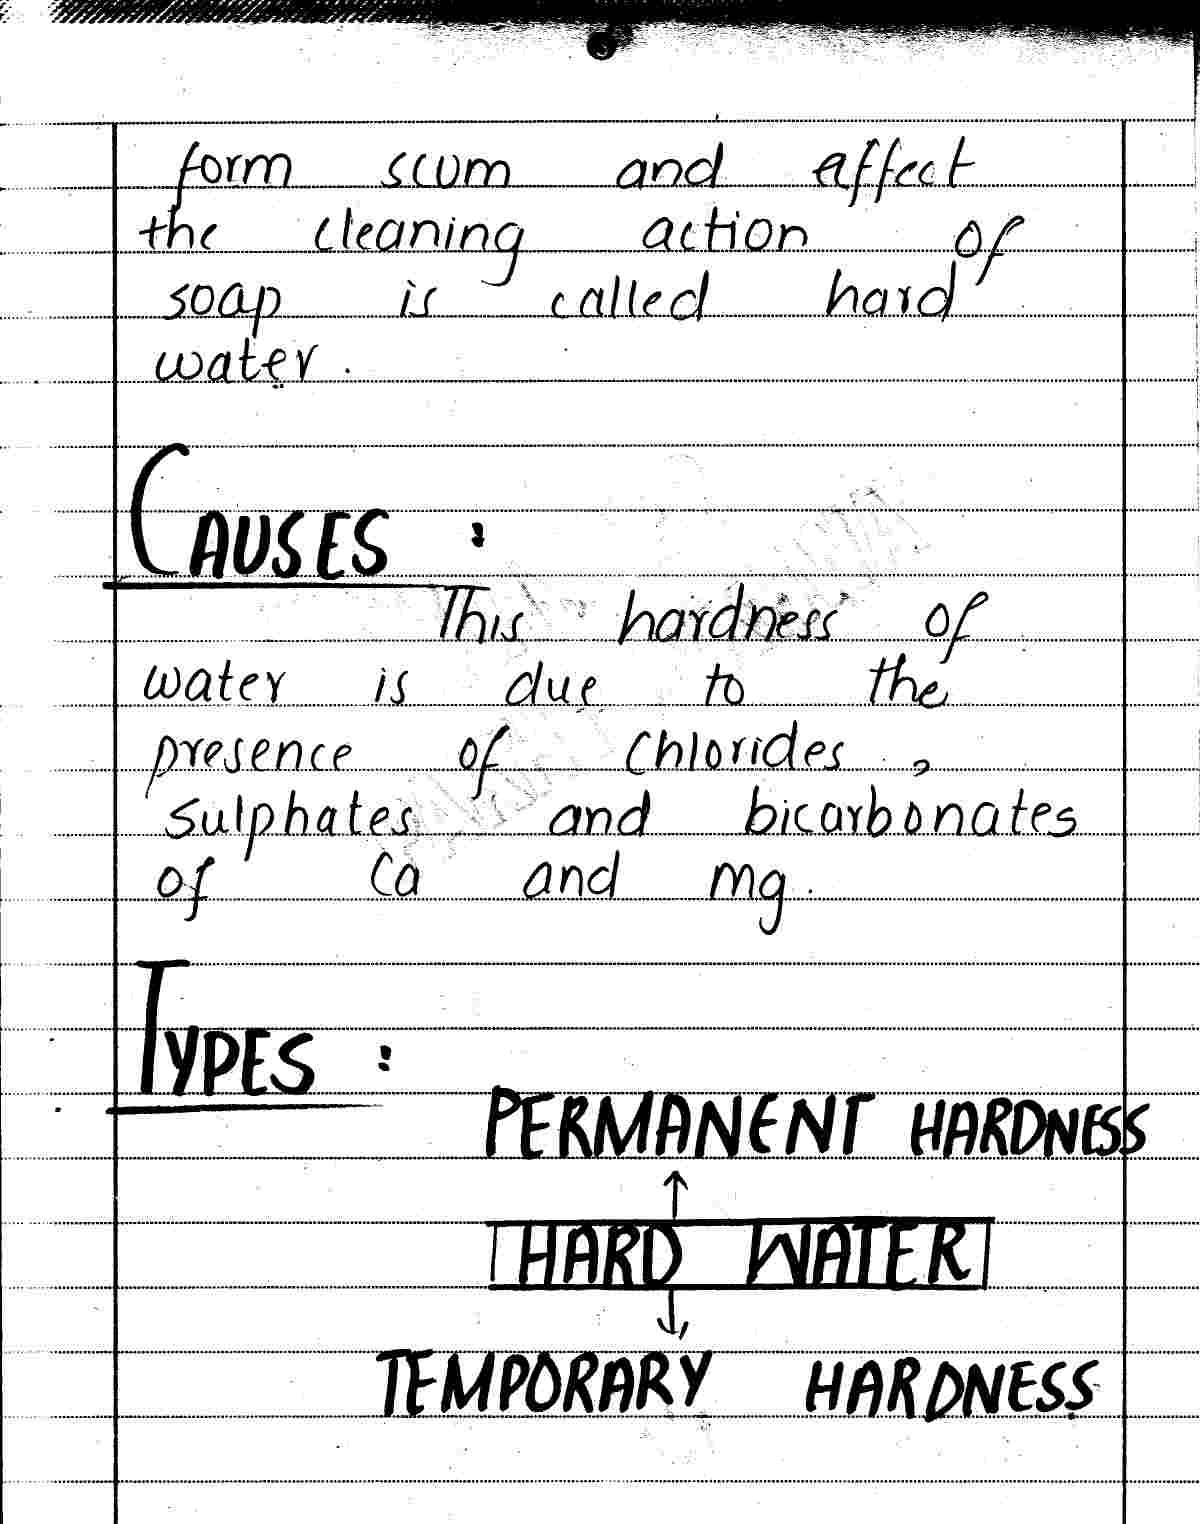 form scum and affect
the cleaning action of
soap is called hard
water.
CAUSES :
This hardness of
water is due to the
presence of chlorides,
sulphates and bicarbonates
of Ca and mg.
TYPES :
PERMANENT HARDNESS
HARD WATER
TEMPORARY HARDNESS